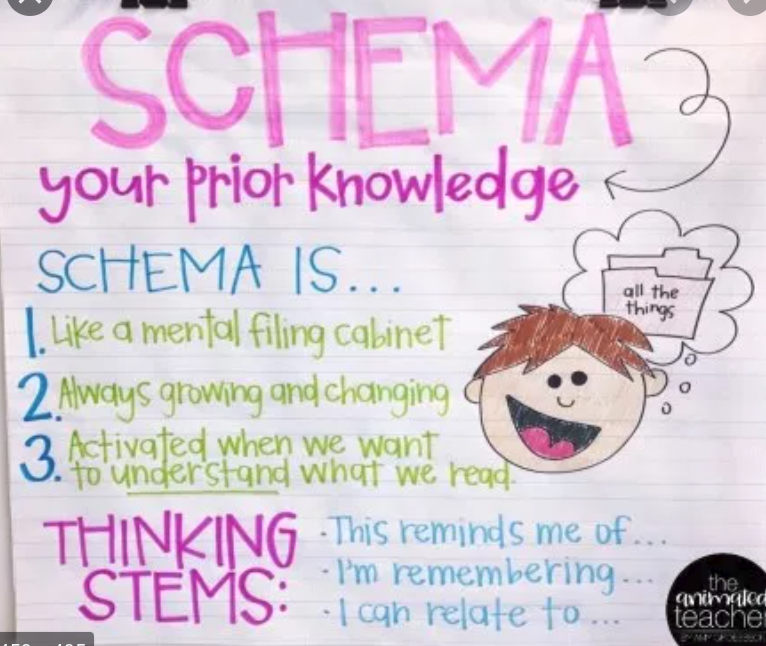 SCHEMA
your prior knowledge
SCHEMA IS...
all the
things
1. Like a mental filing cabinet
2. Always growing and changing
3. Activated when we want
to understand what we read.
THINKING
STEMS:
· This reminds me of...
· I'm remembering...
· I can relate to...
the
animated
teacher